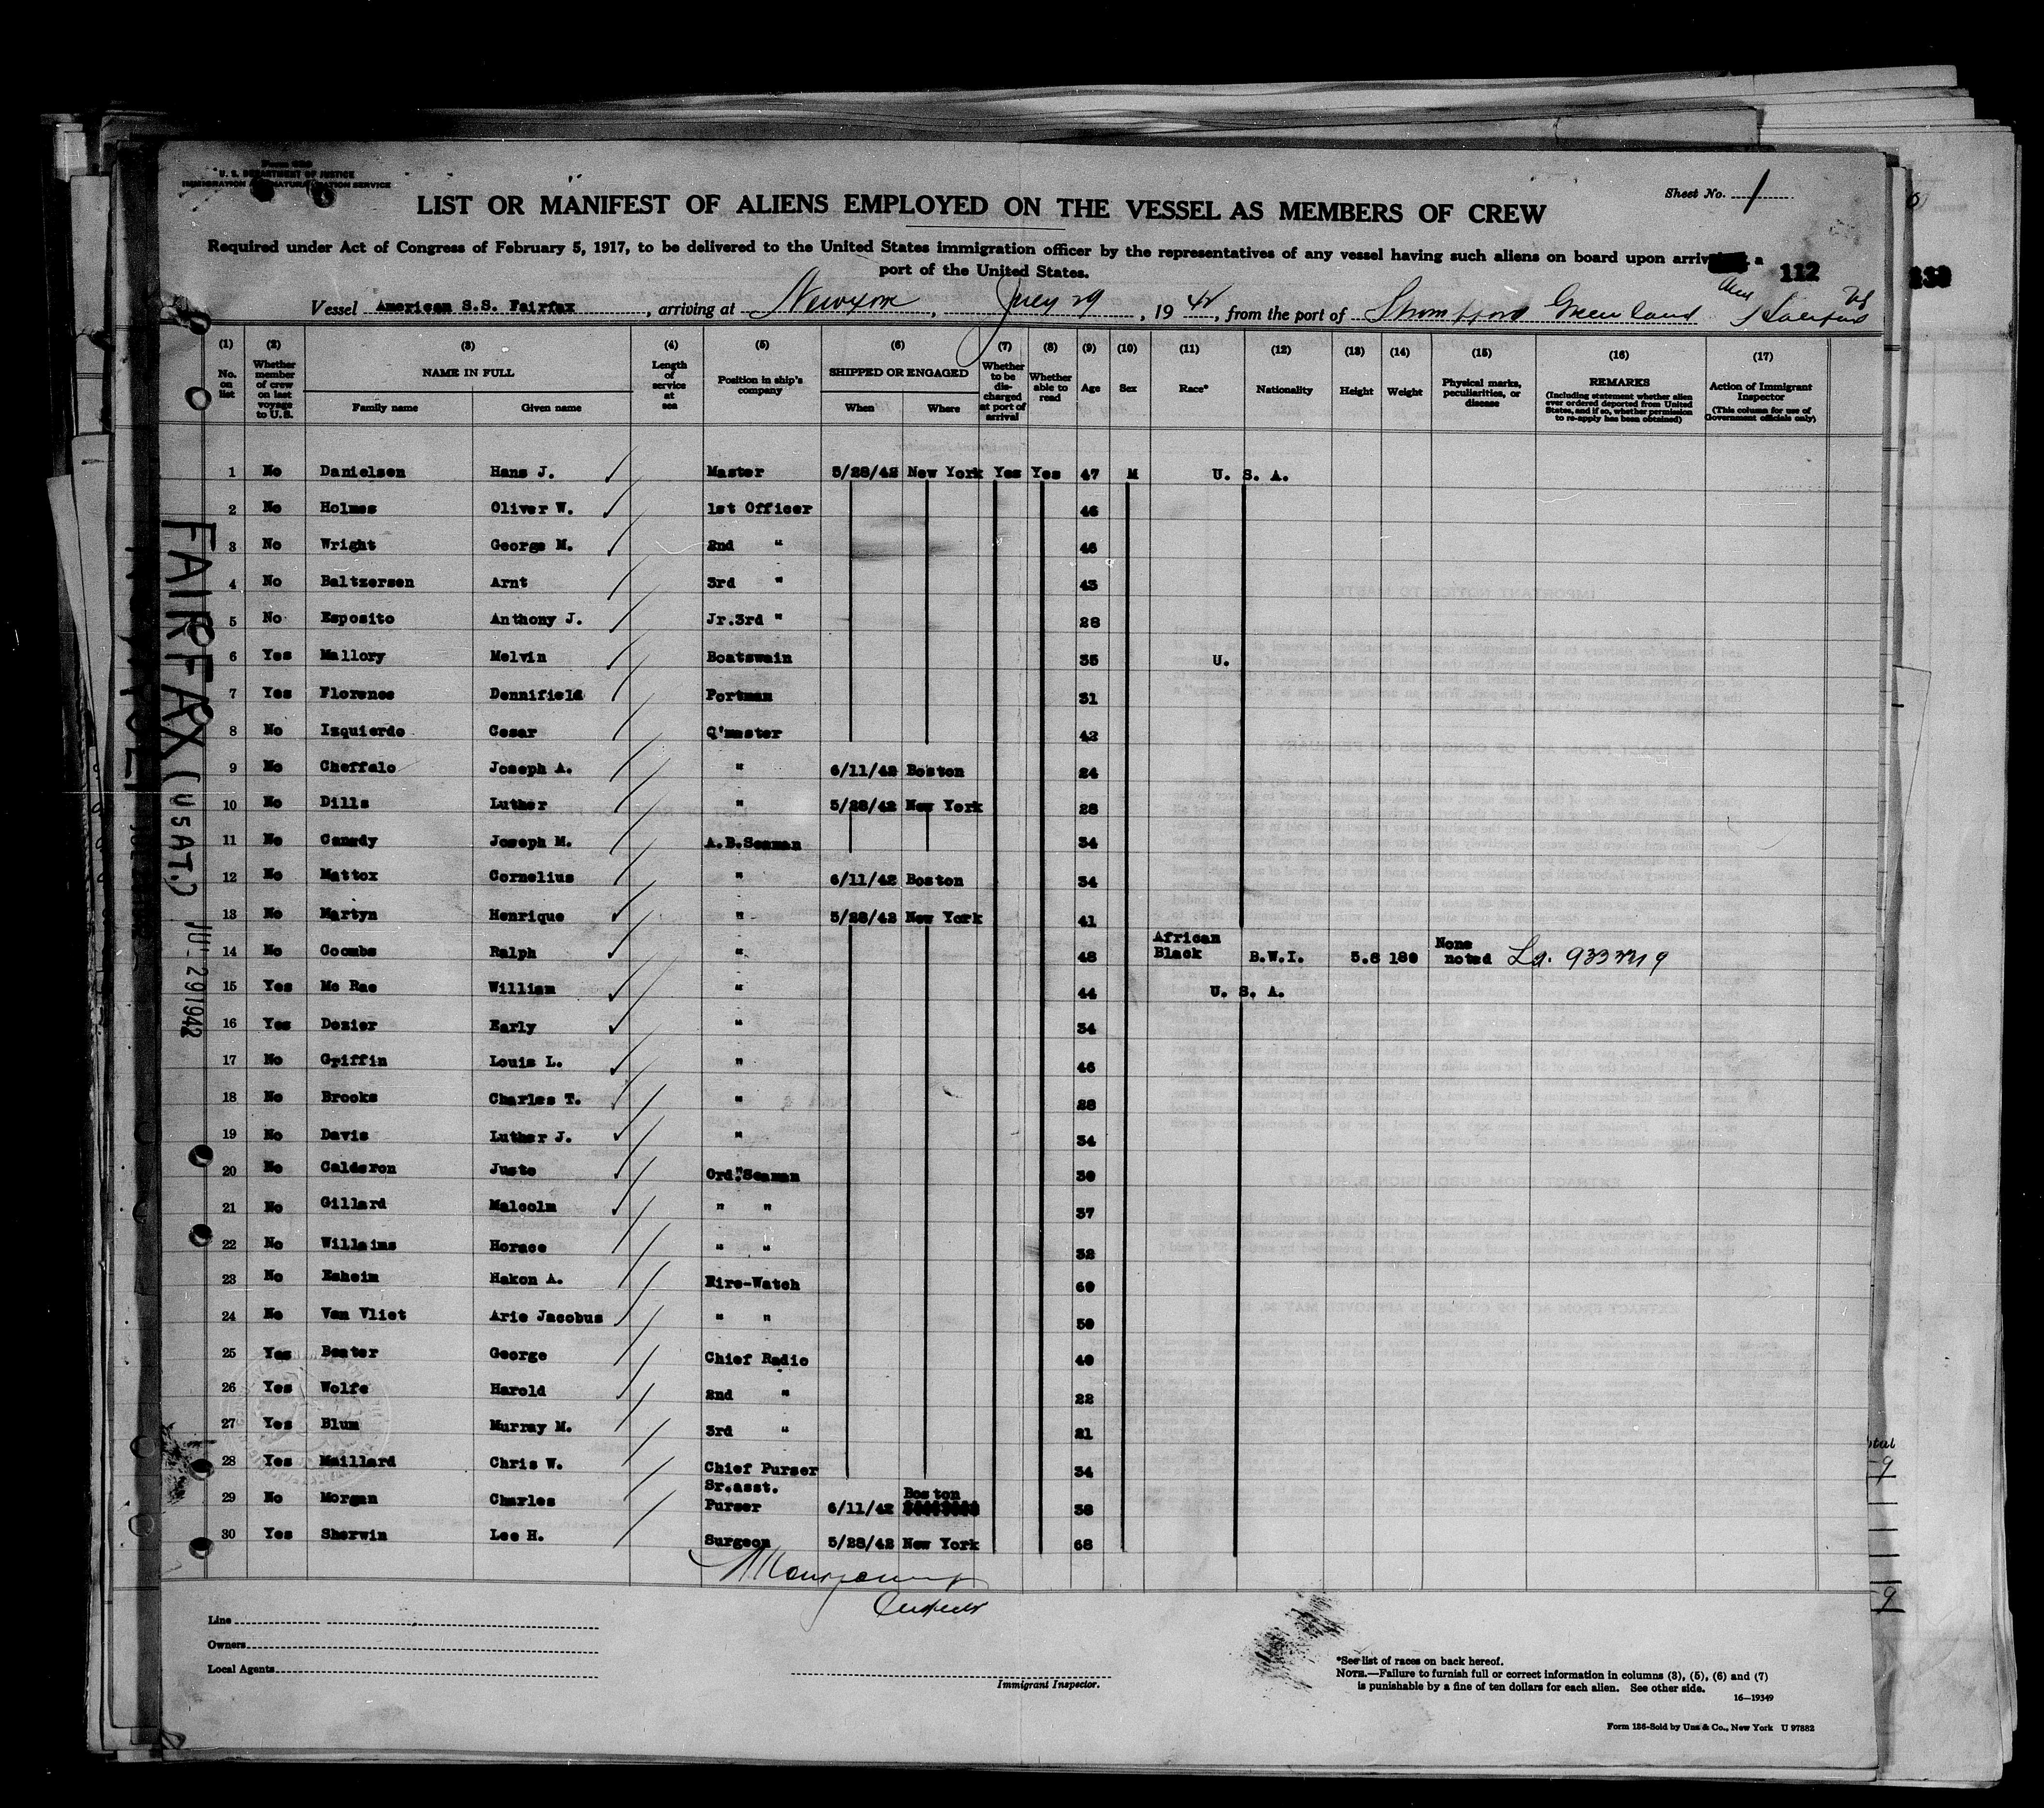 Form 680
U. S. DEPARTMENT OF JUSTICE
IMMIGRATION AND NATURALIZATION SERVICE
Sheet No. 1
LIST OR MANIFEST OF ALIENS EMPLOYED ON THE VESSEL AS MEMBERS OF CREW
Required under Act of Congress of February 5, 1917, to be delivered to the United States immigration officer by the representatives of any vessel having such aliens on board upon arrival at a
port of the United States.
112
Vessel American S.S. Fairfax, arriving at New York, July 29, 1942, from the port of Greenland
(1) (2) (3) (4) (5) (6) (7) (8) (9) (10) (11) (12) (13) (14) (15) (16) (17)
No. on list
Whether member of crew on last voyage to U.S.
NAME IN FULL
Family name Given name
Length of service at sea
Position in ship's company
SHIPPED OR ENGAGED
When Where
Whether to be discharged at port of arrival
Whether able to read
Age
Sex
Race*
Nationality
Height
Weight
Physical marks, peculiarities, or disease
REMARKS
(Including statement whether alien ever ordered deported from United States, and if so, whether permission to re-apply has been obtained)
Action of Immigrant Inspector
(This column for use of Government officials only)
1 No Danielsen Hans J. Master 5/28/42 New York Yes Yes 47 M U. S. A.
2 No Holmes Oliver W. 1st Officer 46
3 No Wright George M. 2nd " 46
4 No Baltzersen Arnt 3rd " 43
5 No Esposito Anthony J. Jr.3rd " 28
6 Yes Mallory Melvin Boatswain 35 U.
7 Yes Florence Dennifield Portman 31
8 No Izquierdo Cesar Q'master 42
9 No Cheffalo Joseph A. " 6/11/42 Boston 24
10 No Dills Luther " 5/28/42 New York 28
11 No Canady Joseph M. A.B.Seaman 34
12 No Mattox Cornelius " 6/11/42 Boston 34
13 No Martyn Henrique " 5/28/42 New York 41
14 No Coombs Ralph " 48 African Black B.W.I. 5.8 180 None noted
15 Yes Mc Rae William " 44 U. S. A.
16 Yes Dozier Early " 34
17 No Griffin Louis L. " 46
18 No Brooks Charles T. " 28
19 No Davis Luther J. " 34
20 No Calderon Justo Ord."Seaman 30
21 No Gillard Malcolm " " 37
22 No Willaims Horace " " 32
23 No Esheim Hakon A. Fire-Watch 60
24 No Van Vliet Arie Jacobus " " 50
25 Yes Beater George Chief Radio 40
26 Yes Wolfe Harold 2nd " 22
27 Yes Blum Murray M. 3rd " 21
28 Yes Maillard Chris W. Chief Purser 34
29 No Morgan Charles Sr.asst. Purser 6/11/42 Boston 38
30 Yes Sherwin Lee H. Surgeon 5/28/42 New York 68
FAIRFAX (USAT.) JUL 29 1942
Line
Owners
Local Agents
Immigrant Inspector.
*See list of races on back hereof.
NOTE.—Failure to furnish full or correct information in columns (3), (5), (6) and (7)
is punishable by a fine of ten dollars for each alien. See other side.
16—19349
Form 126-Sold by Unz & Co., New York U 97882